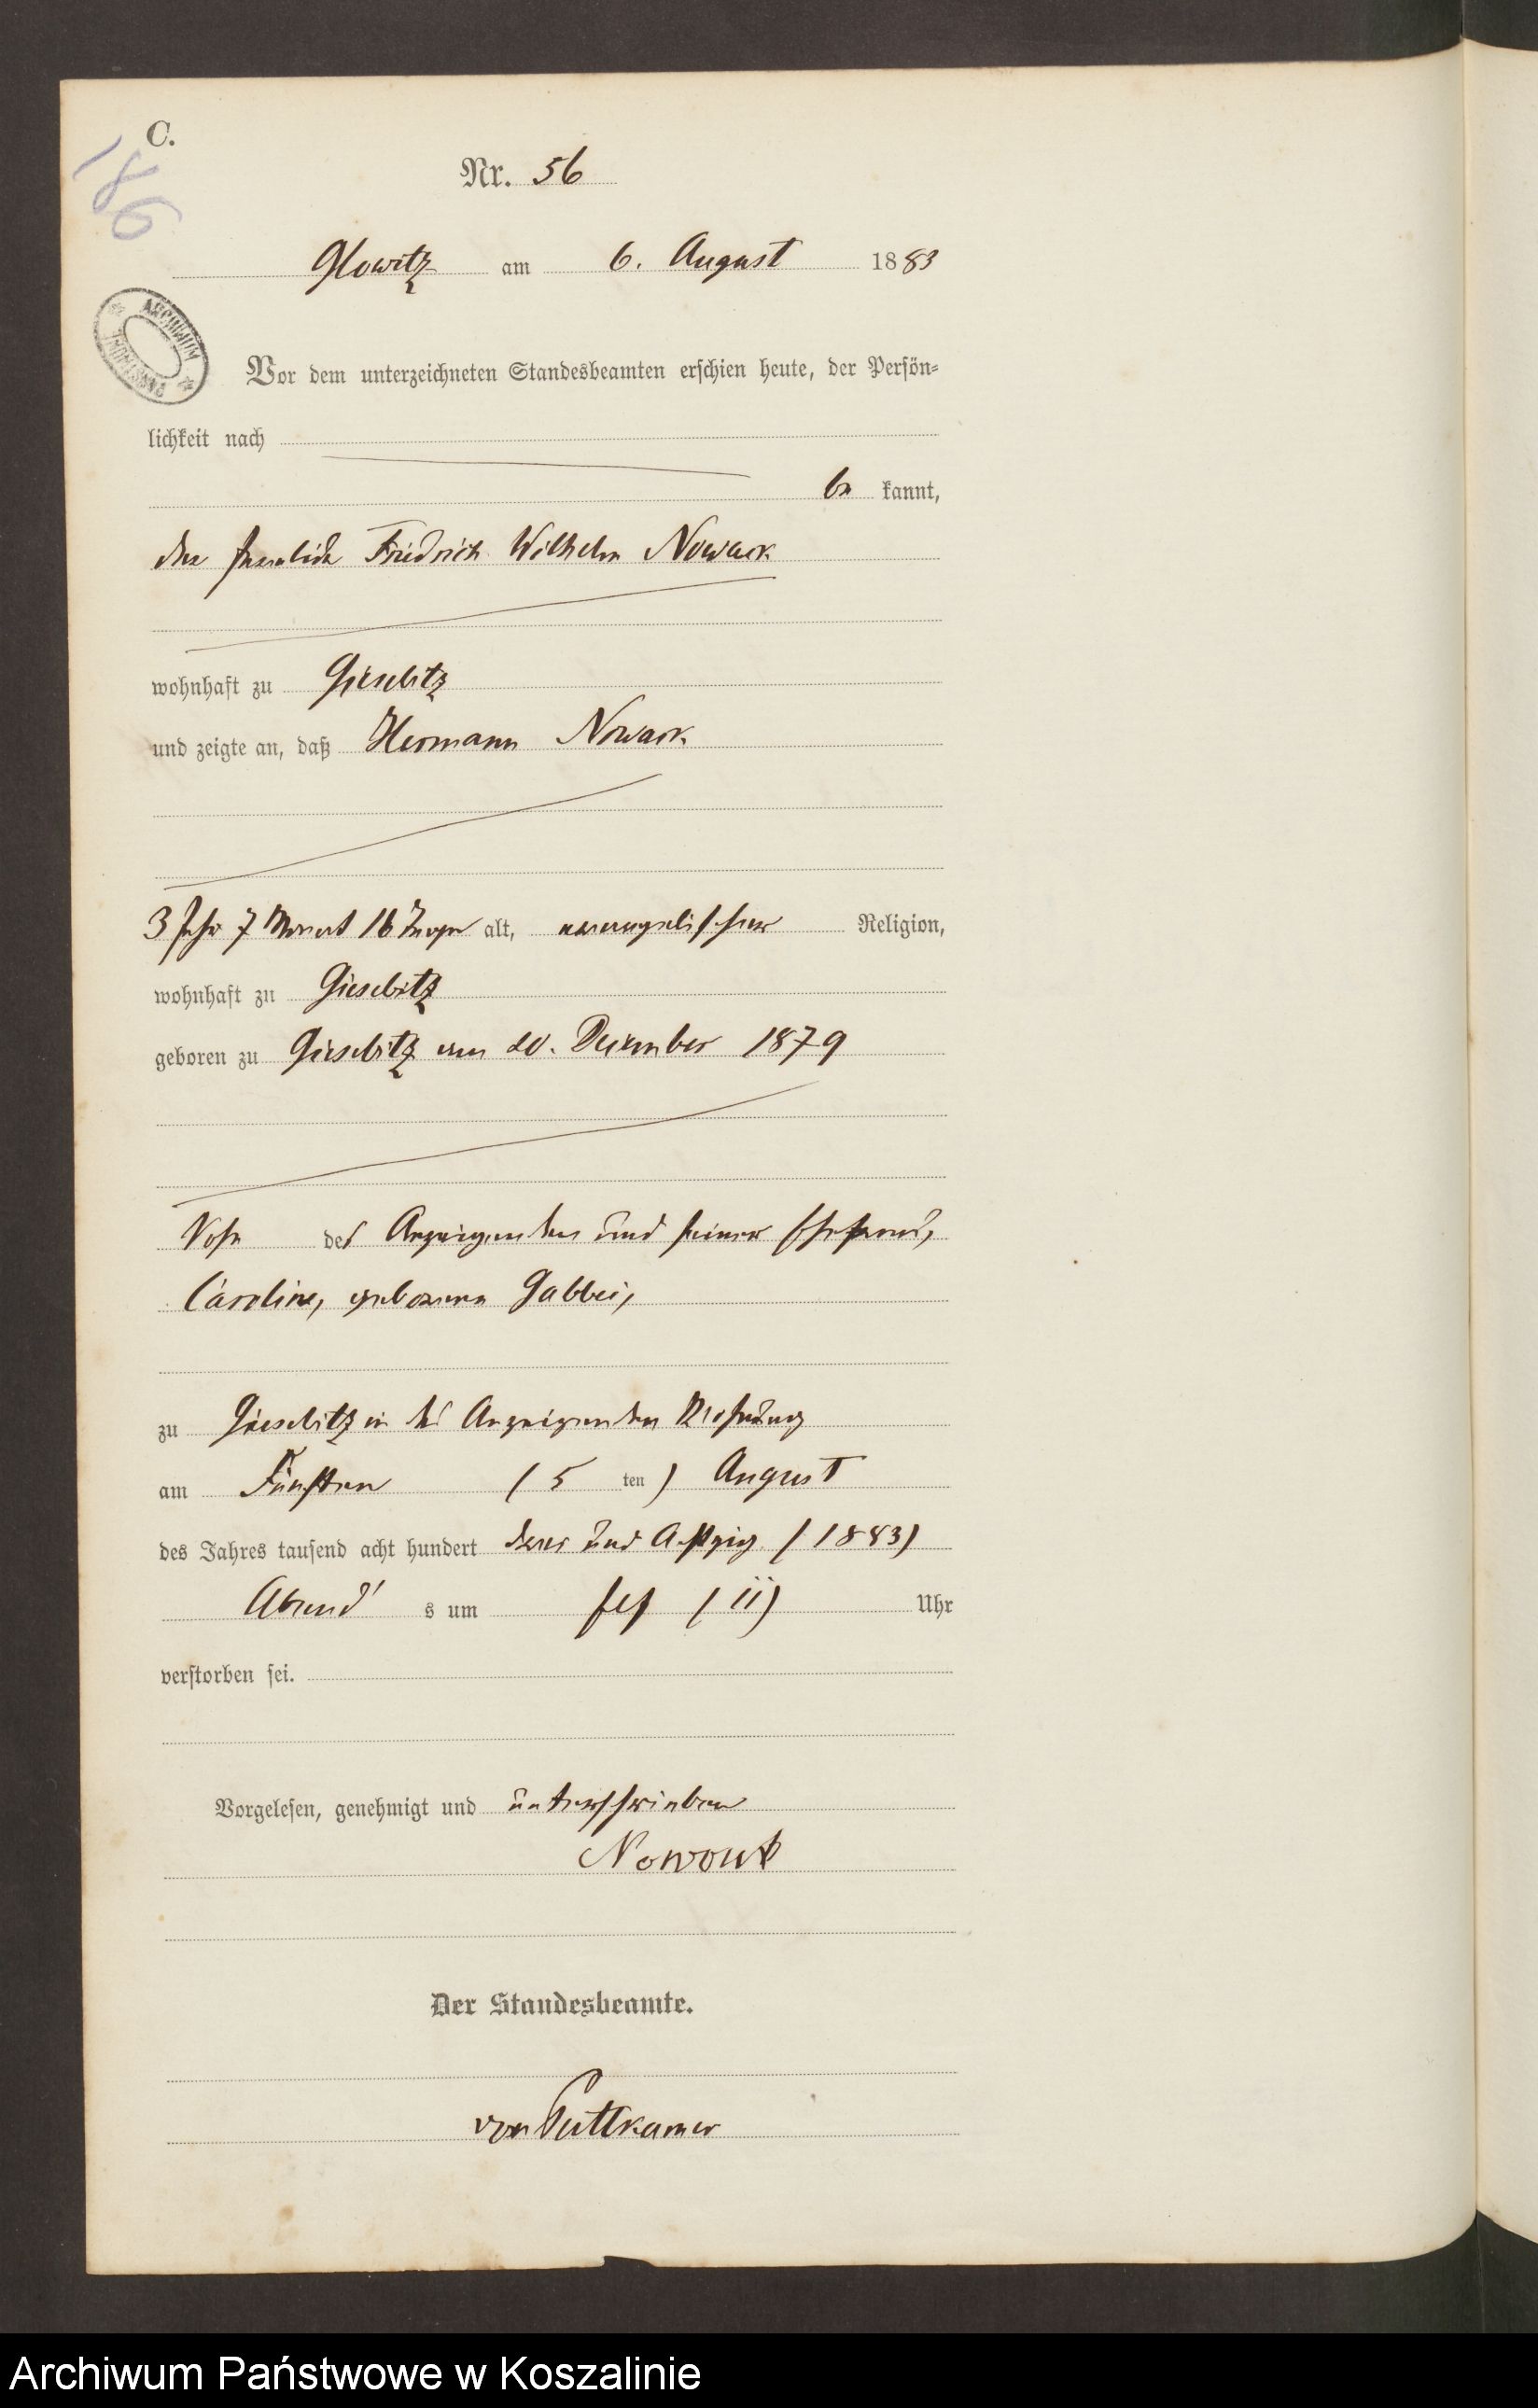 C.
186
Nr. 56
Glowitz am 6. August 1883
ARCHIWUM PAŃSTWOWE
Vor dem unterzeichneten Standesbeamten erschien heute, der Persön-
lichkeit nach
be kannt,
der Friedrich Wilhelm Nowack
wohnhaft zu Gieselitz
und zeigte an, daß Hermann Nowack
3 Jahr 7 Monat 16 Tage alt, evangelischer Religion,
wohnhaft zu Giesebitz
geboren zu Giesebitz am 20. Dezember 1879
Sohn des Anzeigenden und seiner Ehefrau,
Caroline, geborene Gabbei,
zu Giesebitz in des Anzeigenden Wohnung
am Fünften (5 ten) August
des Jahres tausend acht hundert drei und Achtzig (1883)
Abend s um (11) Uhr
verstorben sei.
Vorgelesen, genehmigt und unterschrieben
Nowack
Der Standesbeamte.
von Puttkamer
Archiwum Państwowe w Koszalinie